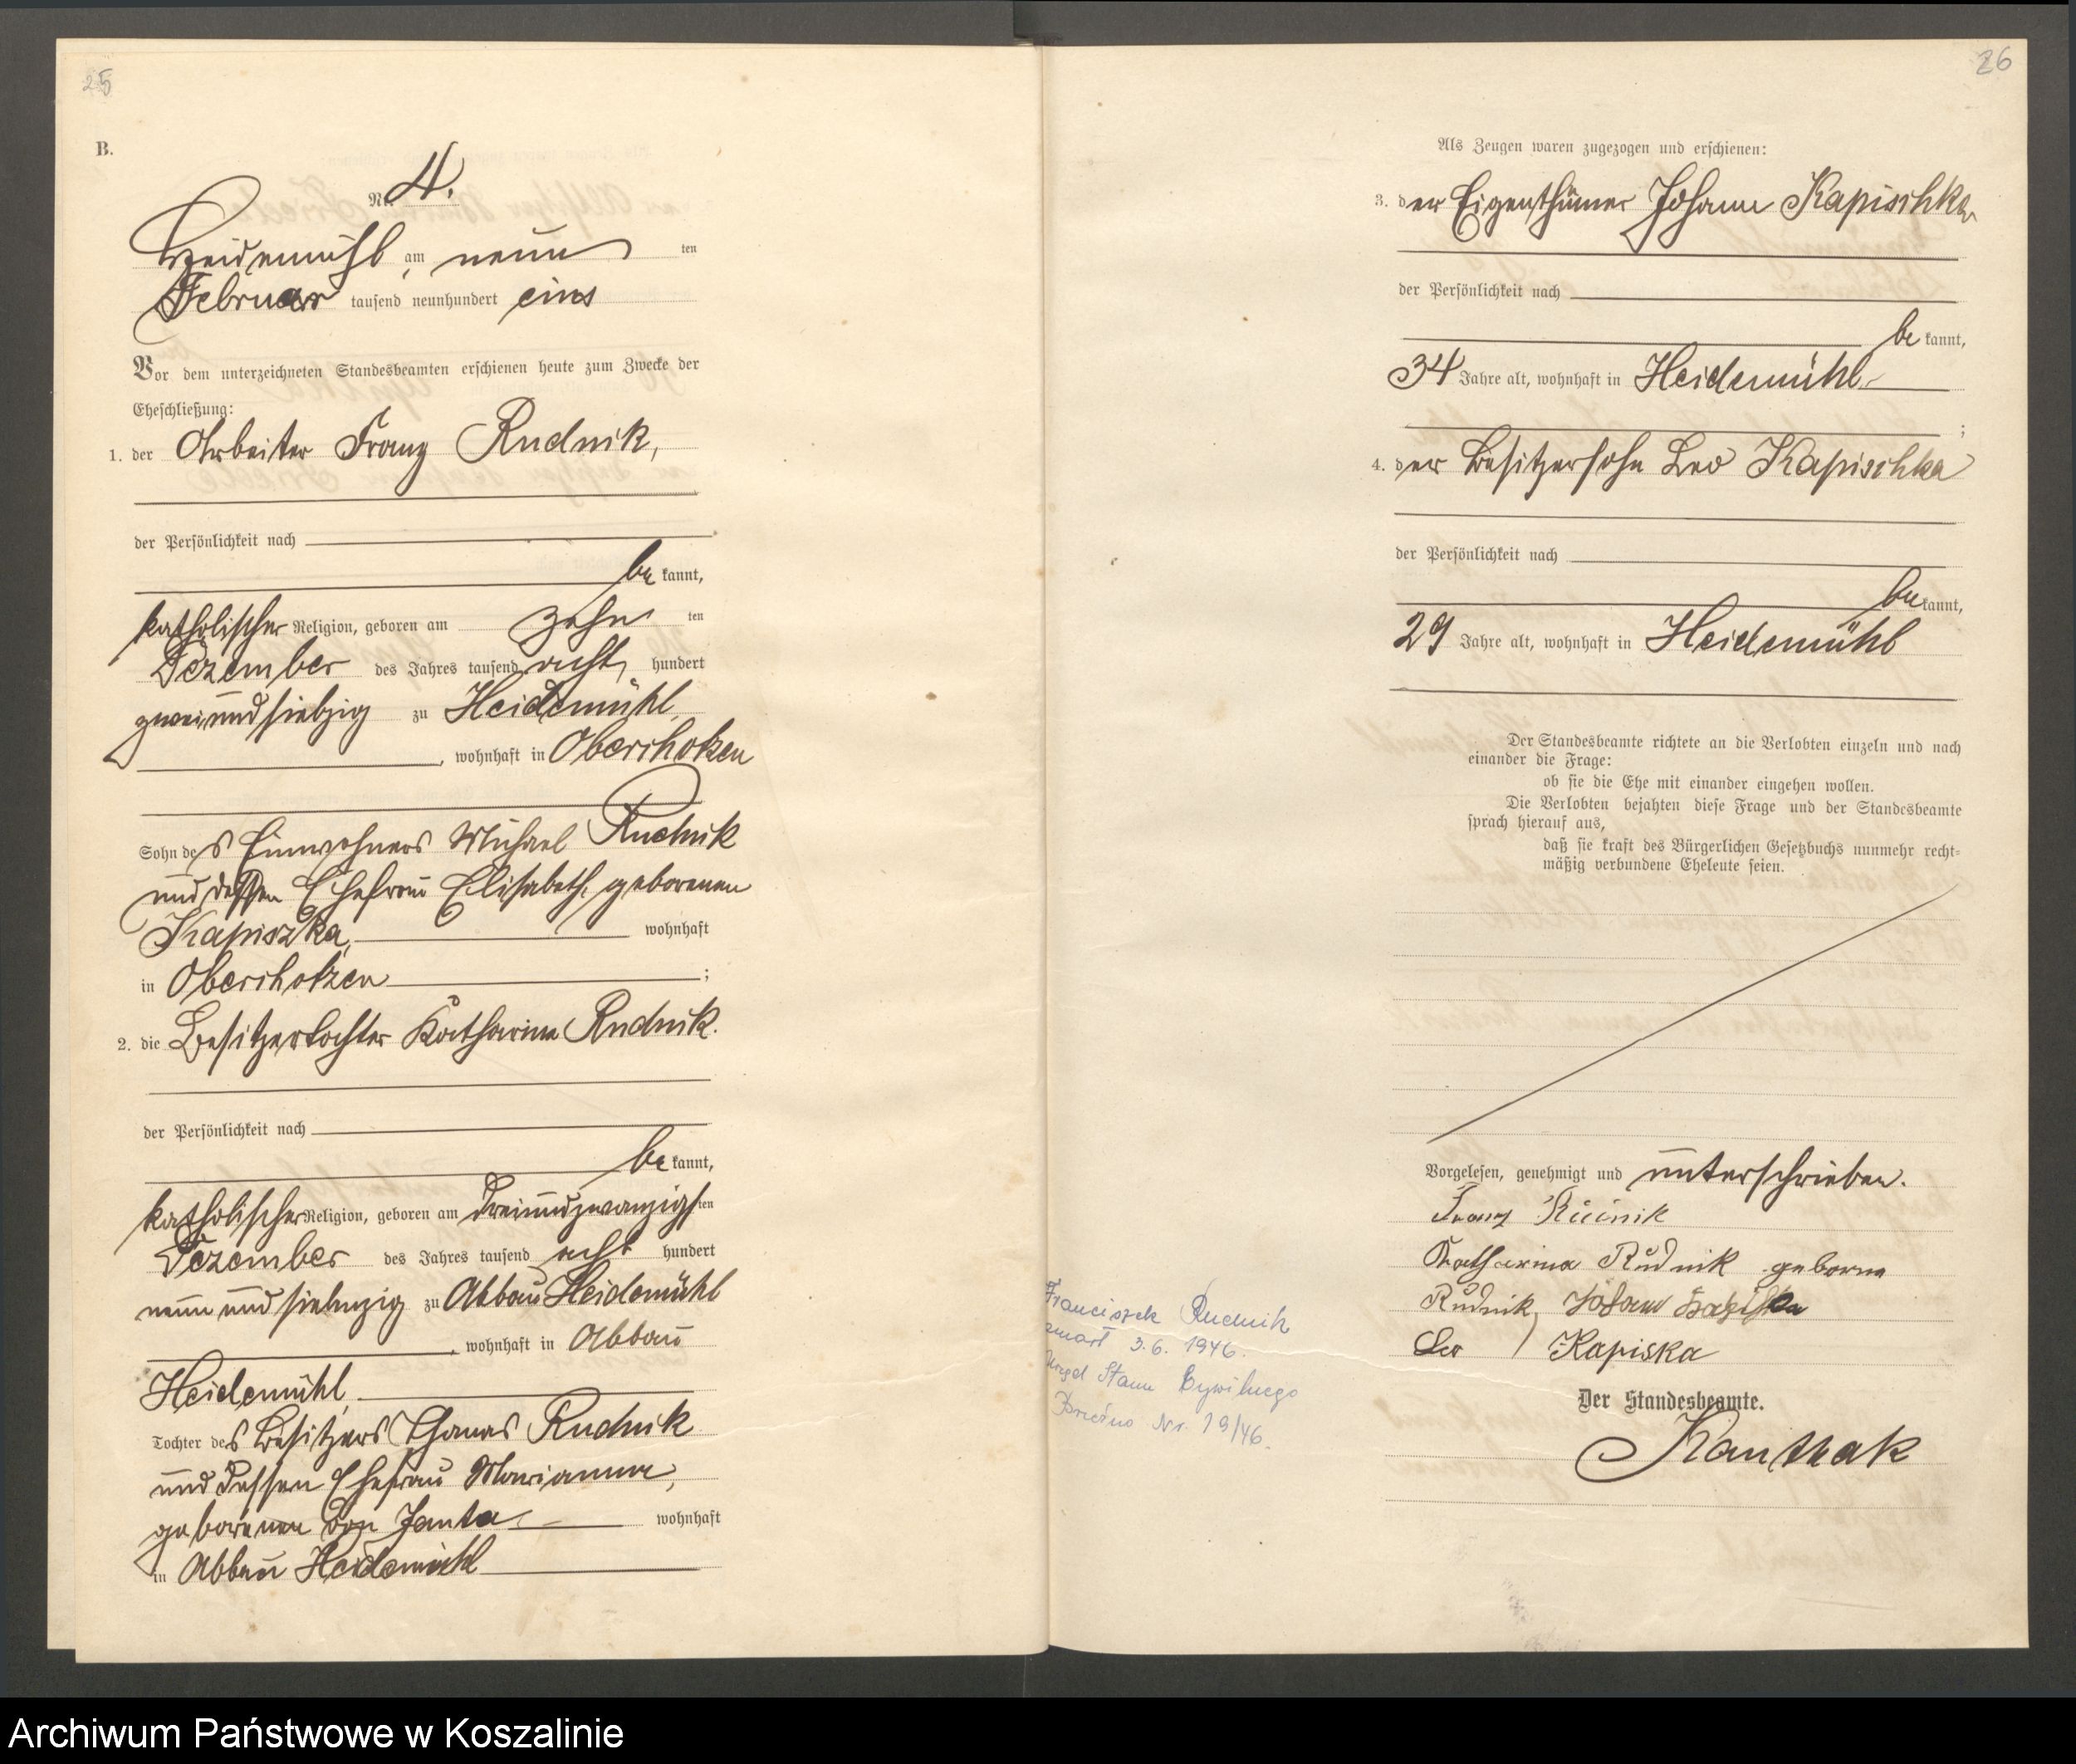 25
B.
Nr. 4.
Heidemühl am neun ten
Februar tausend neunhundert eins
Vor dem unterzeichneten Standesbeamten erschienen heute zum Zwecke der
Eheschließung:
1. der Arbeiter Franz Rudnik,
der Persönlichkeit nach
be kannt,
katholischer Religion, geboren am zehn ten
Dezember des Jahres tausend acht hundert
zwei und siebzig zu Heidemühl,
, wohnhaft in Oberchotzen
Sohn des Einwohners Michael Rudnik
und dessen Ehefrau Elisabeth, geborenen
Kapiszka, wohnhaft
in Oberchotzen ;
2. die Besitzertochter Katharina Rudnik.
der Persönlichkeit nach
be kannt,
katholischer Religion, geboren am dreiundzwanzigsten
Dezember des Jahres tausend acht hundert
neun und siebenzig zu Abbau Heidemühl
, wohnhaft in Abbau
Heidemühl,
Tochter des Besitzers Thomas Rudnik
und dessen Ehefrau Marianna,
geborenen von Janta wohnhaft
in Abbau Heidemühl
26
Als Zeugen waren zugezogen und erschienen:
3. der Eigenthümer Johann Kapischka,
der Persönlichkeit nach
be kannt,
34 Jahre alt, wohnhaft in Heidemühl
;
4. der Besitzersohn Leo Kapischka
der Persönlichkeit nach
be kannt,
29 Jahre alt, wohnhaft in Heidemühl
Der Standesbeamte richtete an die Verlobten einzeln und nach
einander die Frage:
ob sie die Ehe mit einander eingehen wollen.
Die Verlobten bejahten diese Frage und der Standesbeamte
sprach hierauf aus,
daß sie kraft des Bürgerlichen Gesetzbuchs nunmehr recht-
mäßig verbundene Eheleute seien.
Vorgelesen, genehmigt und unterschrieben.
Franz Rudnik
Katharina Rudnik geborne
Rudnik, Johann Kapiska
Leo Kapiska
Der Standesbeamte.
Franciszek Rudnik
zmarł 3.6.1946.
Urząd Stanu Cywilnego
Brzeźno Nr. 19/46.
Archiwum Państwowe w Koszalinie